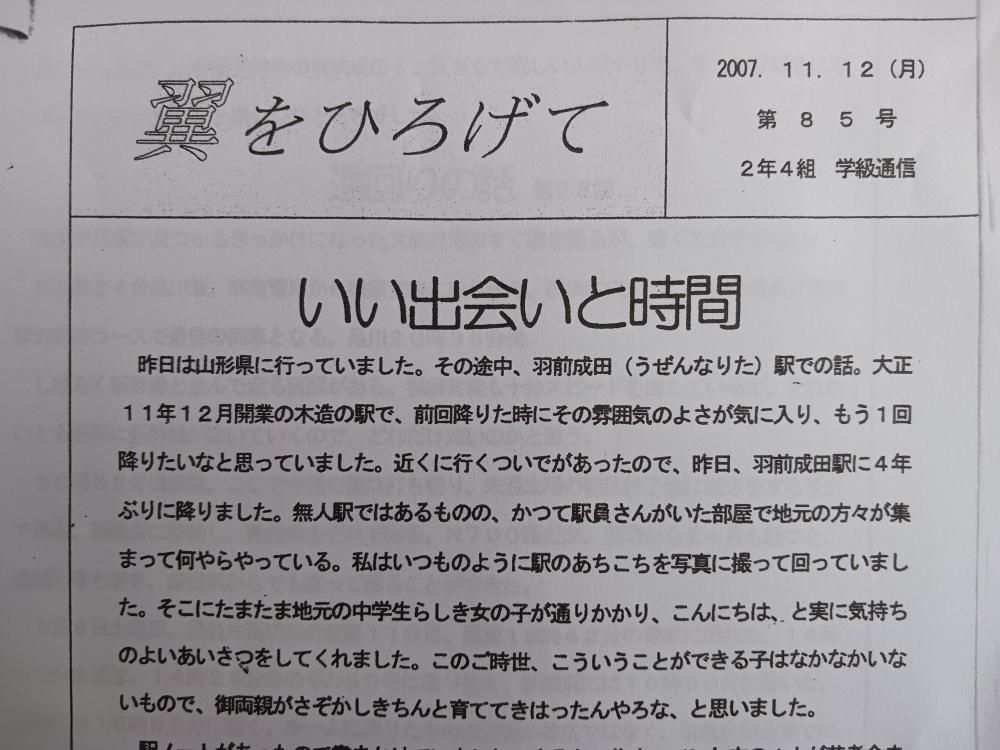 翼をひろげて
2007.11.12(月)
第85号
2年4組 学級通信
いい出会いと時間
昨日は山形県に行っていました。その途中、羽前成田(うぜんなりた)駅での話。大正
11年12月開業の木造の駅で、前回降りた時にその雰囲気のよさが気に入り、もう1回
降りたいなと思っていました。近くに行くついでがあったので、昨日、羽前成田駅に4年
ぶりに降りました。無人駅ではあるものの、かつて駅員さんがいた部屋で地元の方々が集
まって何やらやっている。私はいつものように駅のあちこちを写真に撮って回っていまし
た。そこにたまたま地元の中学生らしき女の子が通りかかり、こんにちは、と実に気持ち
のよいあいさつをしてくれました。このご時世、こういうことができる子はなかなかいな
いもので、御両親がさぞかしきちんと育ててきはったんやろな、と思いました。